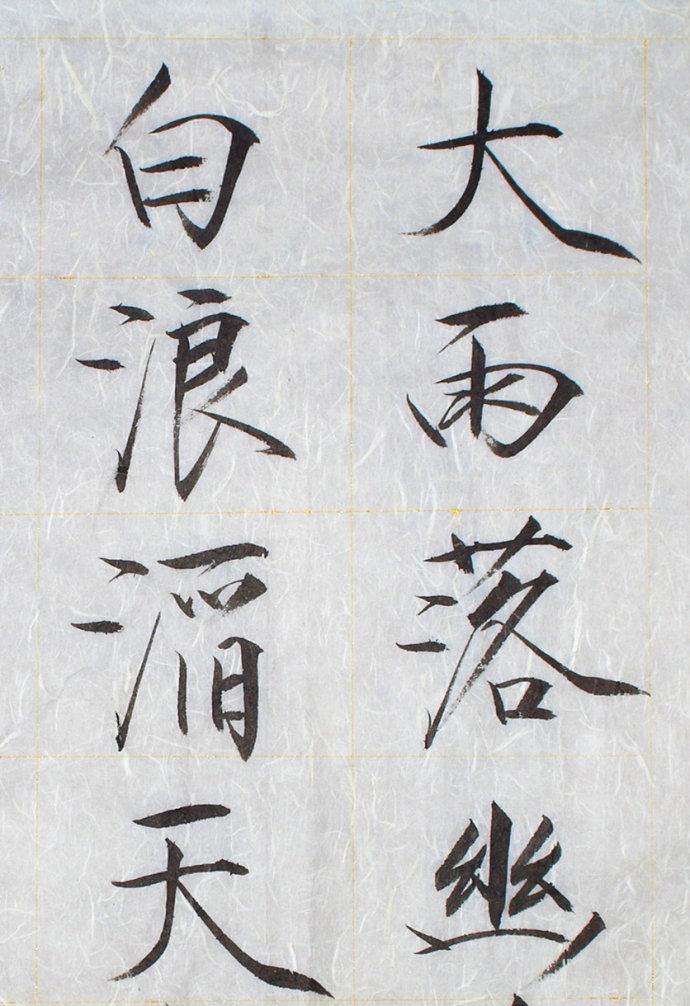 大雨落幽
白浪滔天